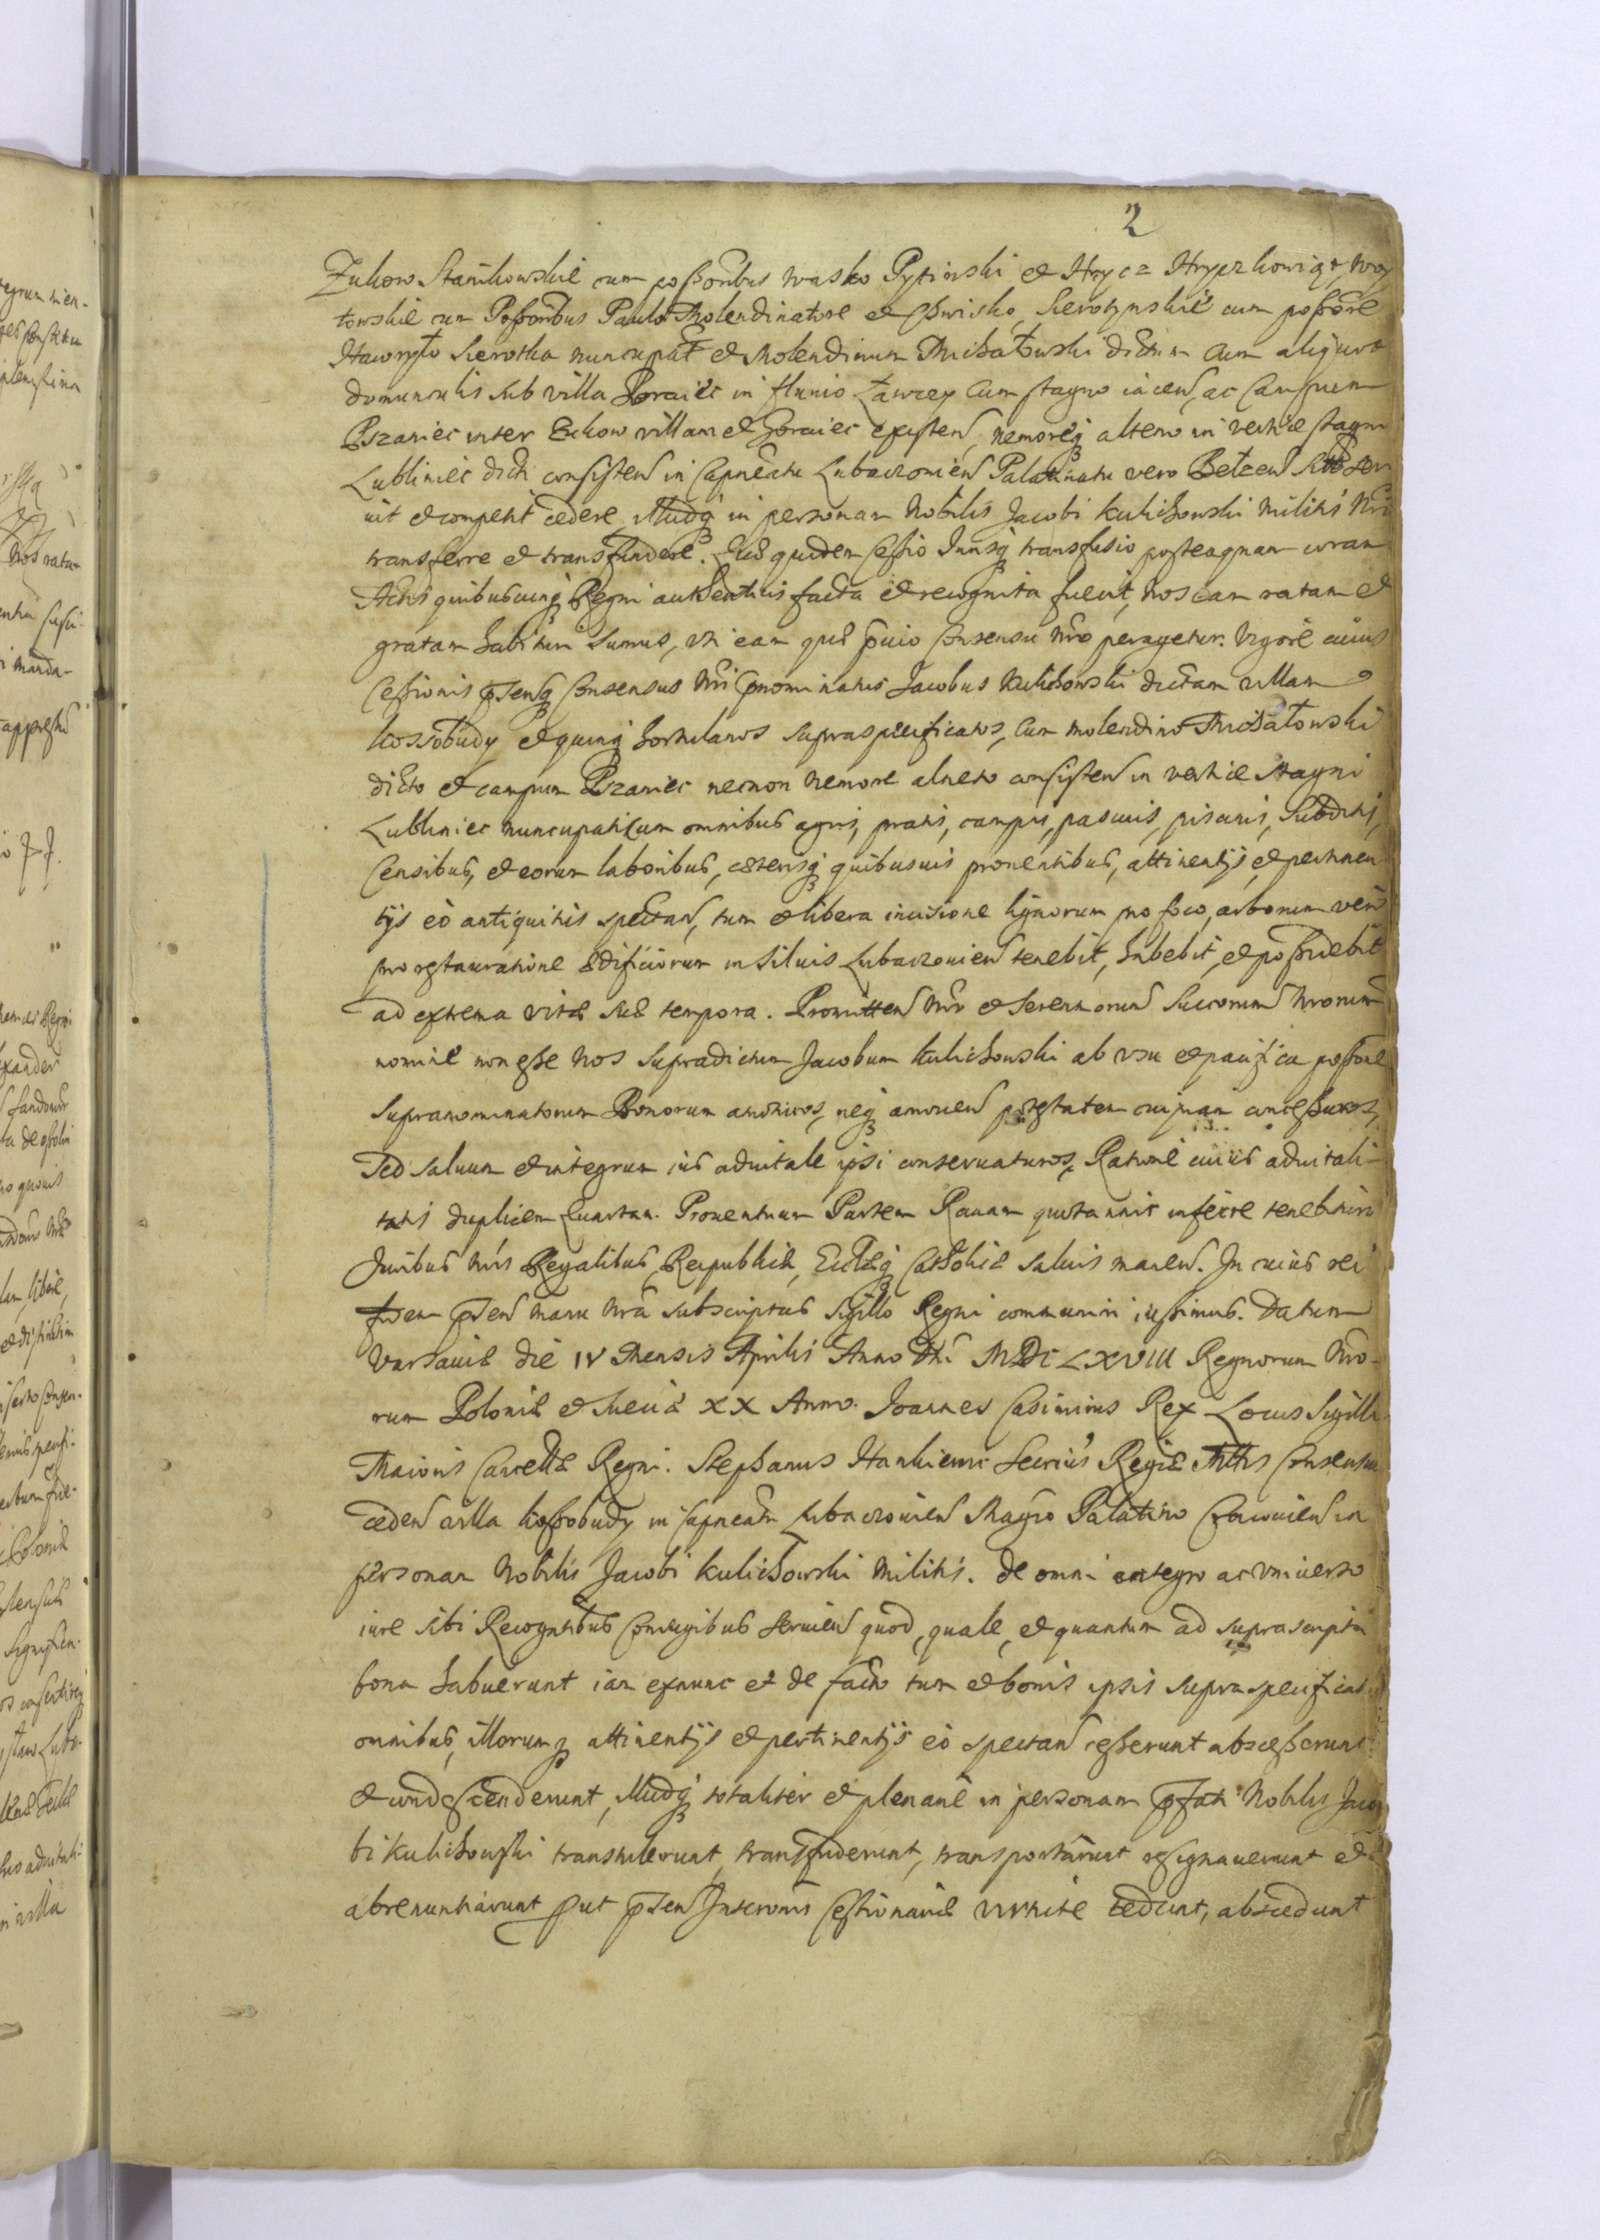 2
Zukow Stanikowskie cum possoribus Wasko Pytinski et Hrycz Hryczkowiąt, Woy
towskie cum Possoribus Paulo Molendinatore et Chwisko, Sierotynskie cum possore
Hawryło Sierotka nuncupat et Molendinum Michałowski dictum cum aliquot
domunculis sub villa Horaiec in fluuio Ławczy cum stagno iacen, ac Campum
Pszaniec inter Zukow villam et Horaiec existen, nemoreq alteno in vertice stagni
Lubliniec dicti consisten in Capneatu Lubaczouien Palatinatu vero Belzen sitis ser
uit et competit cedere, illudq in personam Nobilis Jacobi Kulichowski Militis Nri
transferre et transfundere. Quæ quidem Cessio Jurisq transfusio posteaquam coram
Actis quibuscunq Regni authenticis facta et recognita fuerit, Nos eam ratam et
gratam habituri sumus, vti eam quæ prvio Consensu Nro peragetur. Vigore cuius
Cessionis psensq Consensus Nri pnominatus Jacobus Kulichowski dictam villam
Kossobudy et quinq hortulanos supraspecificatos, cum molendino Michałowski
dicto et campum Pszaniec necnon Nemore alneto consisten in vertice stagni
Lubliniec nuncupati cum omnibus agris, pratis, campis, pascuis, piscinis, subditis,
Censibus, et eorum laboribus, cæterisq quibusuis prouentibus, attinentijs, et pertinen
tijs eò antiquitis spectan, tum et libera incisione lignorum pro foco, arborum verò
pro restauratione ædificiorum in siluis Lubaczouien tenebit, habebit, et possidebit
ad extrema vitæ suæ tempora. Promitten Nro et Serenmorum Succorum Nrorum
nomine non esse Nos supradictum Jacobum Kulichowski ab vsu et pacifica possone
supranominatorum Bonorum amoturos, neq amouen potestatem cuipiam concessuros,
sed saluum et integrum ius aduitale ipsi conseruaturos, Ratione cuius aduitali-
tatis duplicem Quartam Prouentuum Partem Rauam quotannis inferre tenebitur
Juribus Nris Regalibus, Reipublicæ, Ecclæq Catholicæ saluis manen. In cuius rei
fidem psen manu Nra subscriptas Sigillo Regni communiri iussimus. Datum
Varsauiæ die IV Mensis Aprilis Anno Dni MDCLXVIII Regnorum Nro-
rum Poloniæ et Sueciæ XX Anno. Joannes Casimirus Rex Locus Sigilli
Maioris Cancellæ Regni. Stephanus Hankiewic Secrius Regiæ Mttis Consensus
ceden villa Kossobudy in Capneatu Lubaczouien Magco Palatino Cracouien in
personam Nobilis Jacobi Kulichowski Militis. de omni integro ac vniuerso
iure sibi Recogntibus Coniugibus seruien quod, quale, et quantum ad suprascripta
bona habuerunt iam exnunc et de facto tum et bonis ipsis supraspecificat
omnibus, illorumq attinentijs et pertinentijs eò spectan cesserunt abscesserunt
et condescenderunt, illudq totaliter et plenarie in personam pfati Nobilis Jaco
bi Kulichowski transtulerunt, transfuderunt, transportârunt resignauerunt et
abrenuntiârunt Put psen Inscronis Cessionariæ virtute cedunt, abscedunt